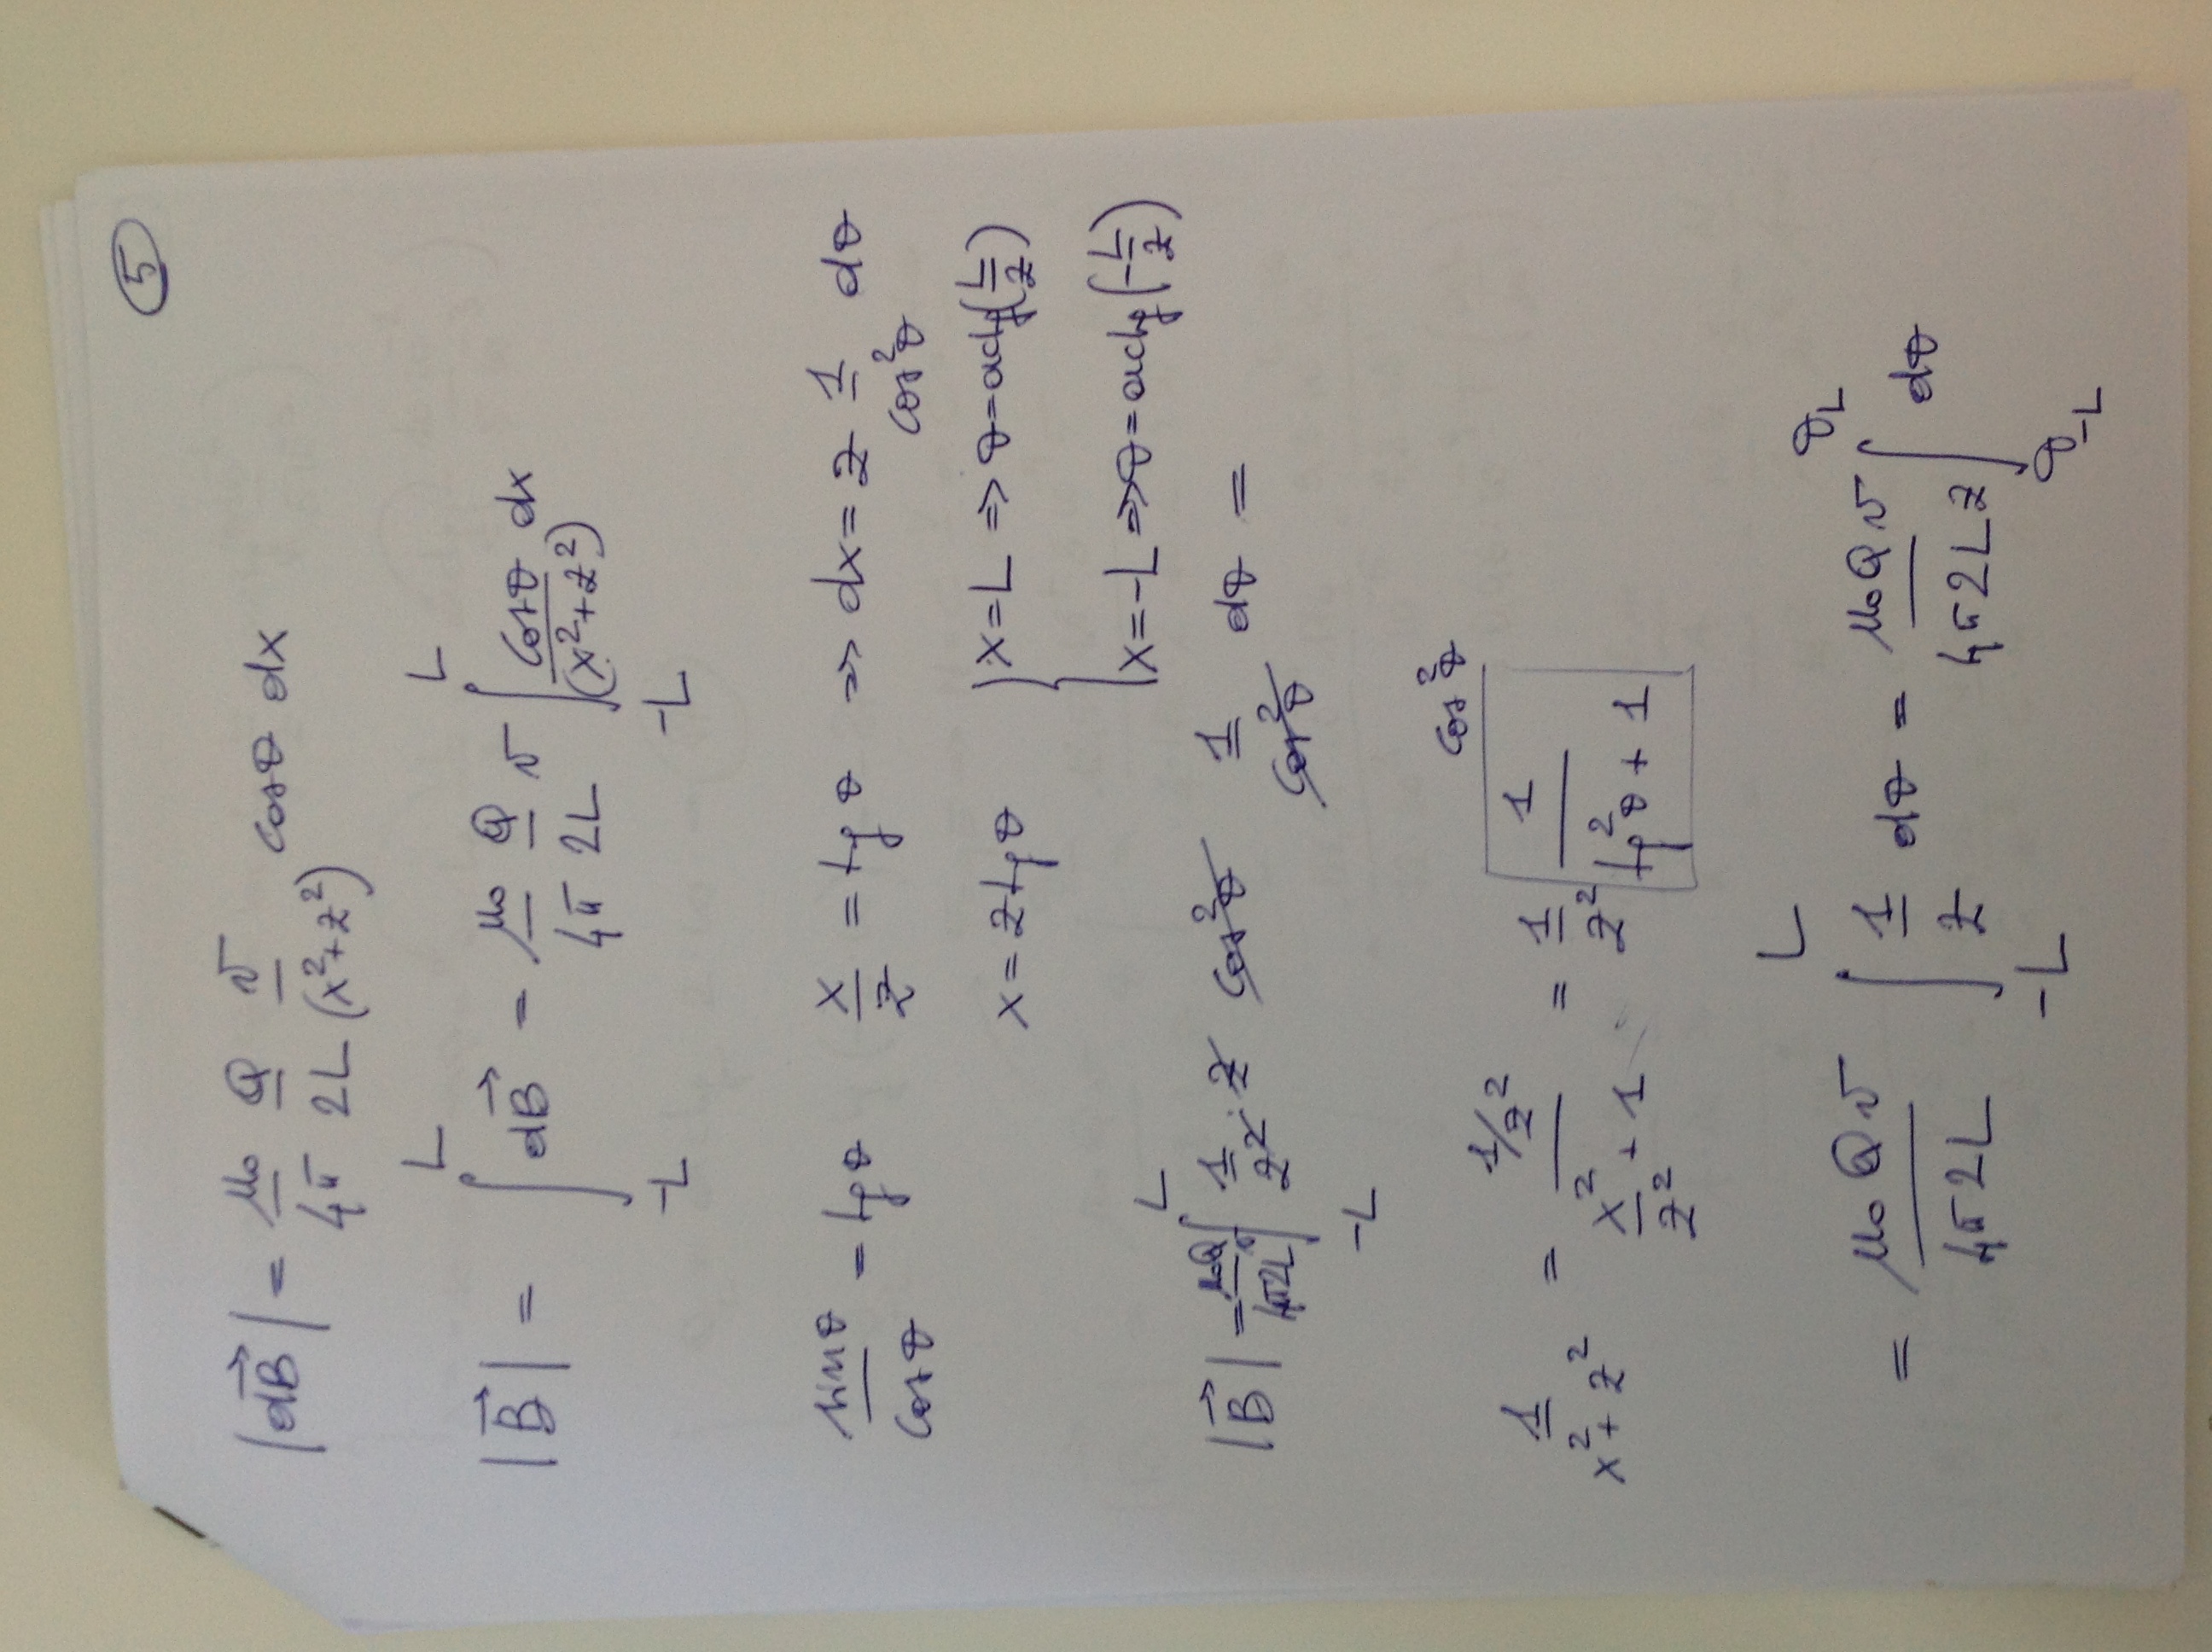 5
|dB⃗| = μ₀/4π Q/2L v/(x²+z²) cosθ dx
|B⃗| = ∫_{-L}^{L} dB⃗ = μ₀/4π Q/2L v ∫_{-L}^{L} cosθ/(x²+z²) dx
sinθ/cosθ = tgθ x/z = tgθ => dx = z 1/cos²θ dθ
x = z tgθ { x = L => θ = arctg(L/z)
x = -L => θ = arctg(-L/z)
|B⃗| = μ₀Q/4π2L v ∫_{-L}^{L} 1/z² · z cos²θ 1/cos²θ dθ =
cos²θ
1/(x²+z²) = (1/z²)/(x²/z² + 1) = 1/z² 1/(tg²θ + 1)
= μ₀Qv/4π2L ∫_{-L}^{L} 1/z dθ = μ₀Qv/4π2Lz ∫_{θ_{-L}}^{θ_L} dθ